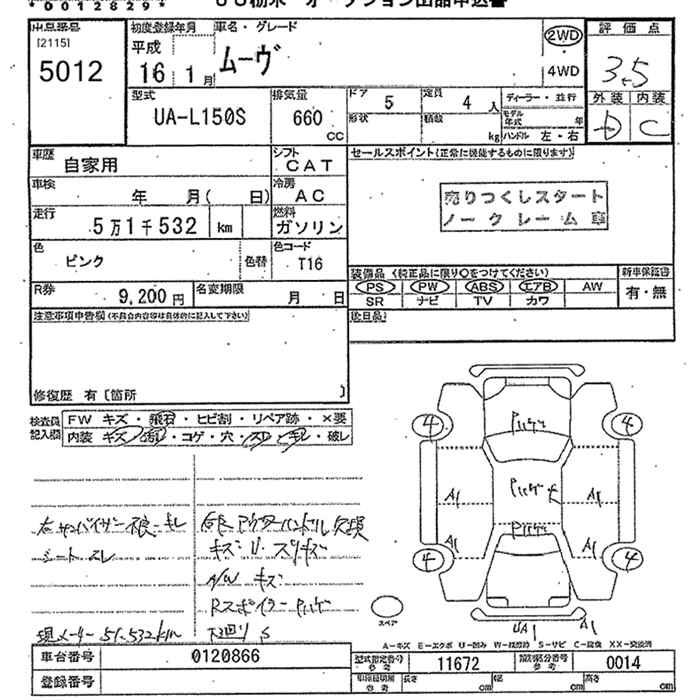 *00128294*
UU栃木 オークション出品申込書
出品番号 [2115] 5012
初度登録年月 平成 16 1月
車名・グレード ムーヴ
2WD
4WD
評価点 3.5
外装 内装
D C
型式 UA-L150S
排気量 660 CC
ドア 5
定員 4 人
形状
積数 kg
ディーラー・並行
モデル年式 年
ハンドル 左・右
車歴 自家用
シフト CAT
車検 年 月( 日)
冷房 AC
走行 5万1千532 km
燃料 ガソリン
色 ピンク
色替
色コード T16
R券 9,200円
名変期限 月 日
セールスポイント(正常に機能するものに限ります)
売りつくしスタート
ノークレーム車
装備品 (純正品に限り○をつけてください)
PS PW ABS エアB AW
SR ナビ TV カワ
新車保証書
有・無
後日品
注意事項申告欄(不具合内容等は具体的に記入して下さい)
修復歴 有〔箇所 〕
検査員記入欄
FW キズ・飛石・ヒビ割・リペア跡・×要
内装 キズ・汚れ・コゲ・穴・スレ・キレ・破レ
シートスレ
A/W キズ
Rスポイラー ハゲ
下廻り S
現メーター 51,532km
4 4
A1 A1
A1 A1
4 4
スペア
UA1 A1
A−キズ E−エクボ U−凹み W−板修跡 S−サビ C−腐食 XX−交換済
車台番号 0120866
登録番号
型式指定番号 参考 11672
類別区分番号 参考 0014
車検証期間 参考 長さ cm 幅 cm 高さ cm